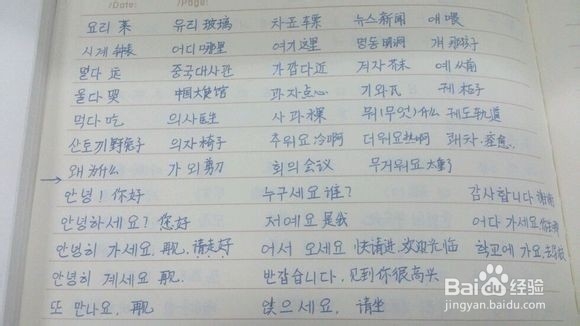 /Date: /Page: /Date: /Page:
요리 菜 유리 玻璃 차표 车票 뉴스 新闻 얘 喂
시계 钟表 어디 哪里 여기 这里 명동 明洞 걔 那孩子
멀다 远 중국대사관 가깝다 近 겨자 芥末 예
울다 哭 中国大使馆 과자 点心 기와 瓦 궤 柜子
먹다 吃 의사 医生 사과 苹果 뭐(무엇) 什么 궤도 轨道
산토끼 野兔子 의자 椅子 추워요 冷啊 더워요 热啊 쾌차 痊愈
왜 为什么 가위 剪刀 회의 会议 무거워요 太重了
안녕! 你好 누구세요 谁? 감사합니다 谢谢
안녕하세요? 您好 저예요 是我 어디 가세요
안녕히 가세요. 再见, 请走好 어서 오세요 快请进, 欢迎光临 학교에 가요.
안녕히 계세요 再见. 반갑습니다. 见到你很高兴
또 만나요. 再见 앉으세요. 请坐
Baidu 百度 经验
jingyan.baidu.com